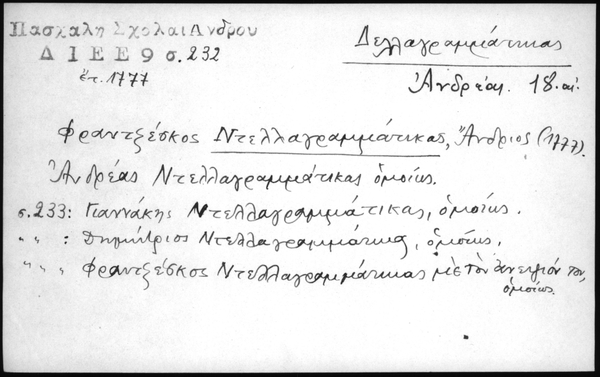 Πασχαλη Σχολαι Ανδρου
Δ Ι Ε Ε 9 σ. 232
ἐτ. 1777
Δελλαγραμμάτικας
Ἀνδρέας. 18. αἰ.
Φραντζέσκος Ντελλαγραμμάτικας, Ἄνδριος (1777).
Ἀνδρέας Ντελλαγραμμάτικας ὁμοίως.
σ. 233: Γιαννάκης Ντελλαγραμμάτικας, ὁμοίως.
" " : Δημήτριος Ντελλαγραμμάτικας, ὁμοίως,
" " , Φραντζέσκος Ντελλαγραμμάτικας μὲ τὸν ἀνεψιόν του,
ὁμοίως.